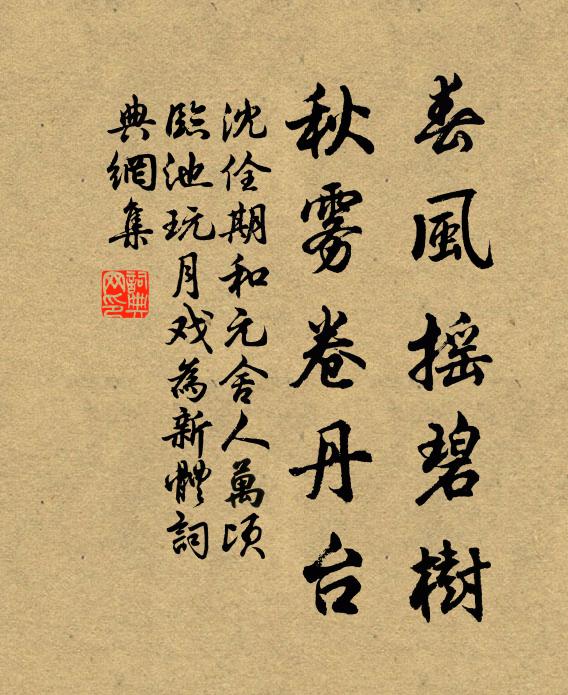 春風摇碧樹
秋雾卷丹台
沈佺期和元舍人萬頃
臨池玩月戏為新體詞
典網集
詞典
网印